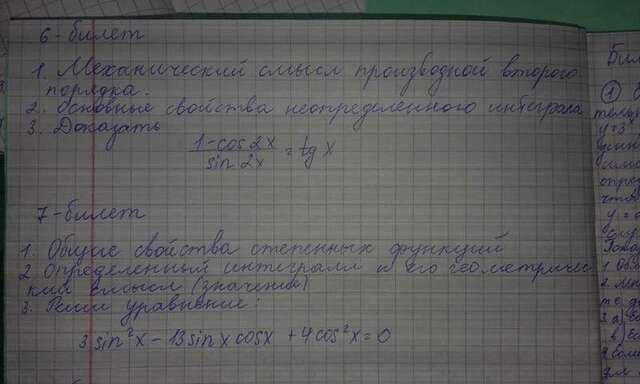 6-билет
1. Механический смысл производной второго
порядка.
2. Основные свойства неопределенного интеграла
3. Доказать
1-cos2x / sin2x = tg x
7-билет
1. Общие свойства степенных функций
2. Определенный интеграл и его геометричес
кий смысл (значение)
3. Реши уравнение:
3 sin²x - 13 sinx cosx + 4 cos²x = 0